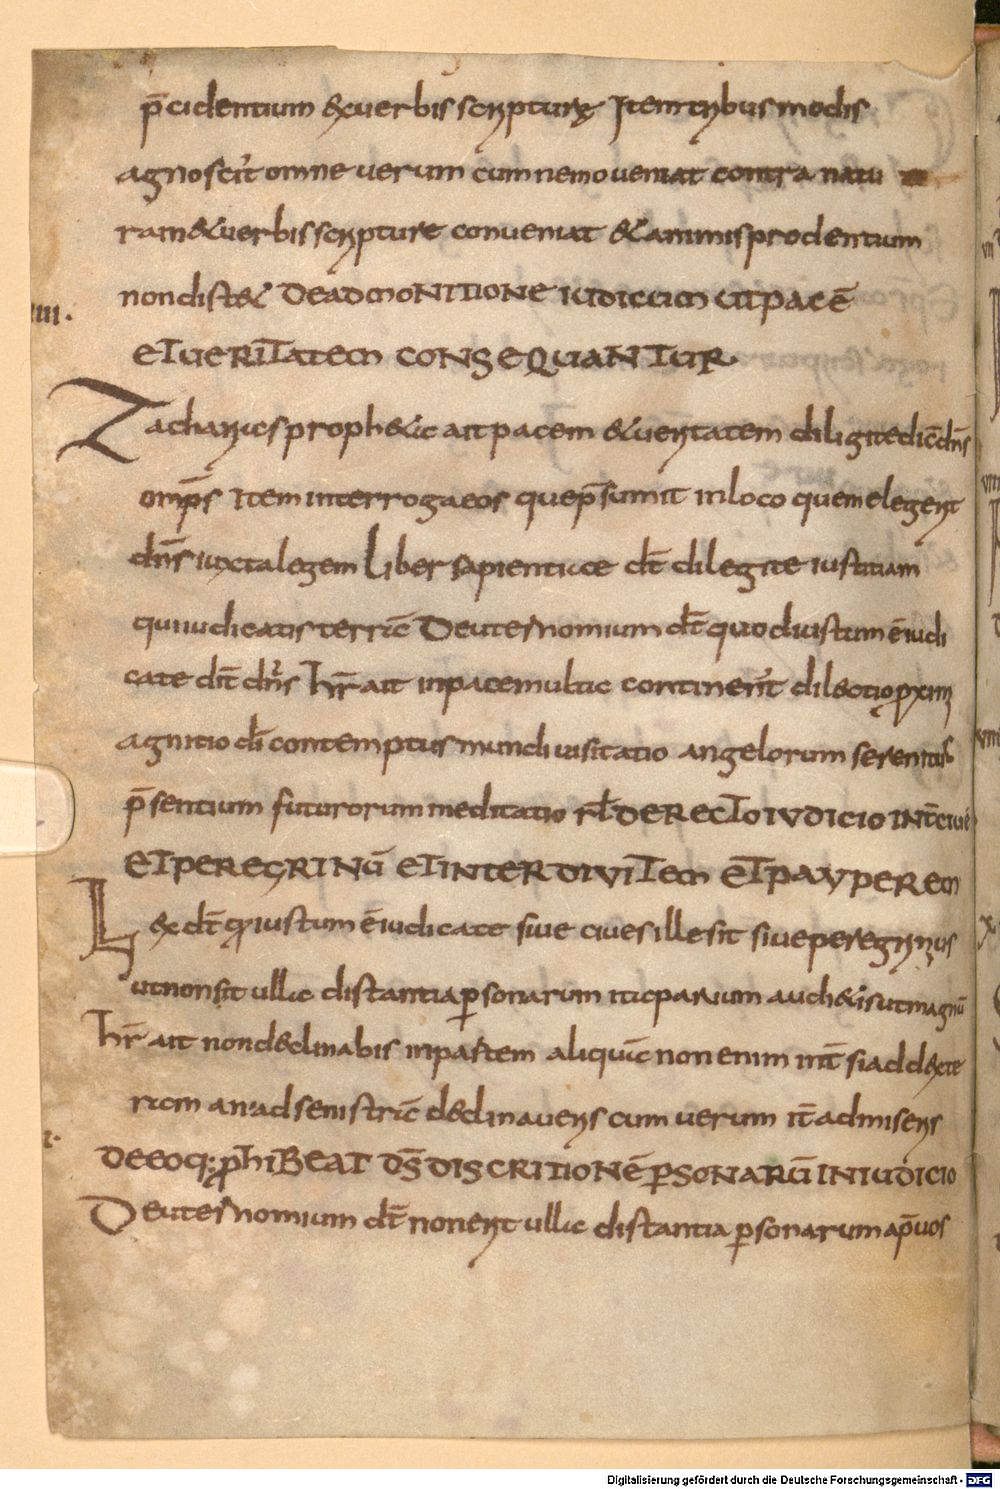 p̄cidentium &uerbis scripturę Item tribus modis
agnoscit̛ omne uerum cum nemo ueniat contra natu
ram &uerbis scripture conueniat & animis prodentum
non dist& DEADMONITIONE IUDICUM UTPACĒ
IIII.
ETUERITATEM CONSEQUANTUR.
Zacharias proph&a ait pacem & ueritatem diligite dic̄ dn̄s
omp̄s Item interroga eos que p̄sumit inloco quem elegerit
dn̄s iuxta legem Liber sapientiae dt̄ diligite iustitiam
qui iudicatis terrā Deuternomium dt̄ quod iustum ē iudi
cate dic̄t dn̄s hr̄ ait inpace multa continent̛ dilectio proxim
agnitio dī contemptus mundi uisitatio angelorum serenitas
p̄sentium futurorum meditatio rł̄ DERECTOIUDICIO INT̄ CIUĒ
ETPEREGRINŪ ETINTER DIVITEM ETPAVPEREM
Lex dt̄ qđ iustum ē iudicate siue ciues ille sit siue peregrinus
ut non sit ulla distantia personarum ita paruum audi&is ut magnū
hr̄ ait non declinabis inpartem aliquā non enim int̄ si ad dexte
ram an ad senistrā declinaueris cum uerum it̄ admiseris
X.
DEEOQ; PROHIBEAT DS̄ DISCRITIONĒ PERSONARŪ IN IUDICIO
Deuternomium dt̄ non erit ulla distantia personarum ap̄ uos
Digitalisierung gefördert durch die Deutsche Forschungsgemeinschaft - DFG